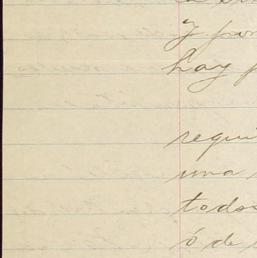 y por
hay p
requi
una
todos
ó de